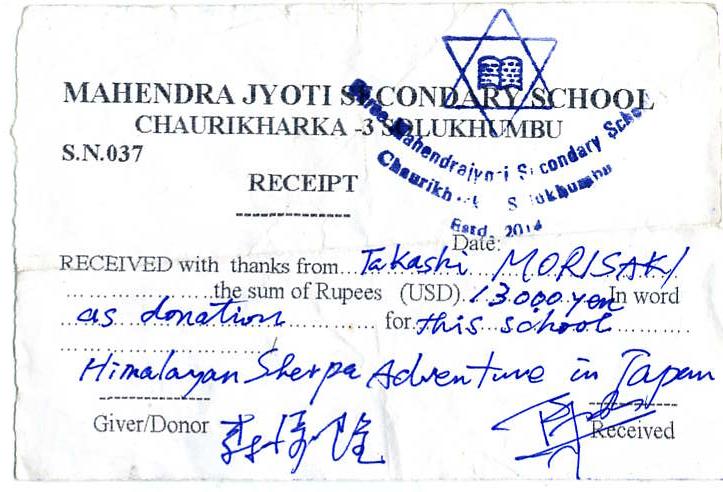 MAHENDRA JYOTI SECONDARY SCHOOL
CHAURIKHARKA -3 SOLUKHUMBU
S.N.037
RECEIPT
Shree Mahendrajyoti Secondary School
Chaurikharka Solukhumbu
Estd. 2014
Date:
RECEIVED with thanks from Takashi MORISAKI
the sum of Rupees (USD) 13000 yen In word
as donation for this school
Himalayan Sherpa Adventure in Japan
Giver/Donor Received